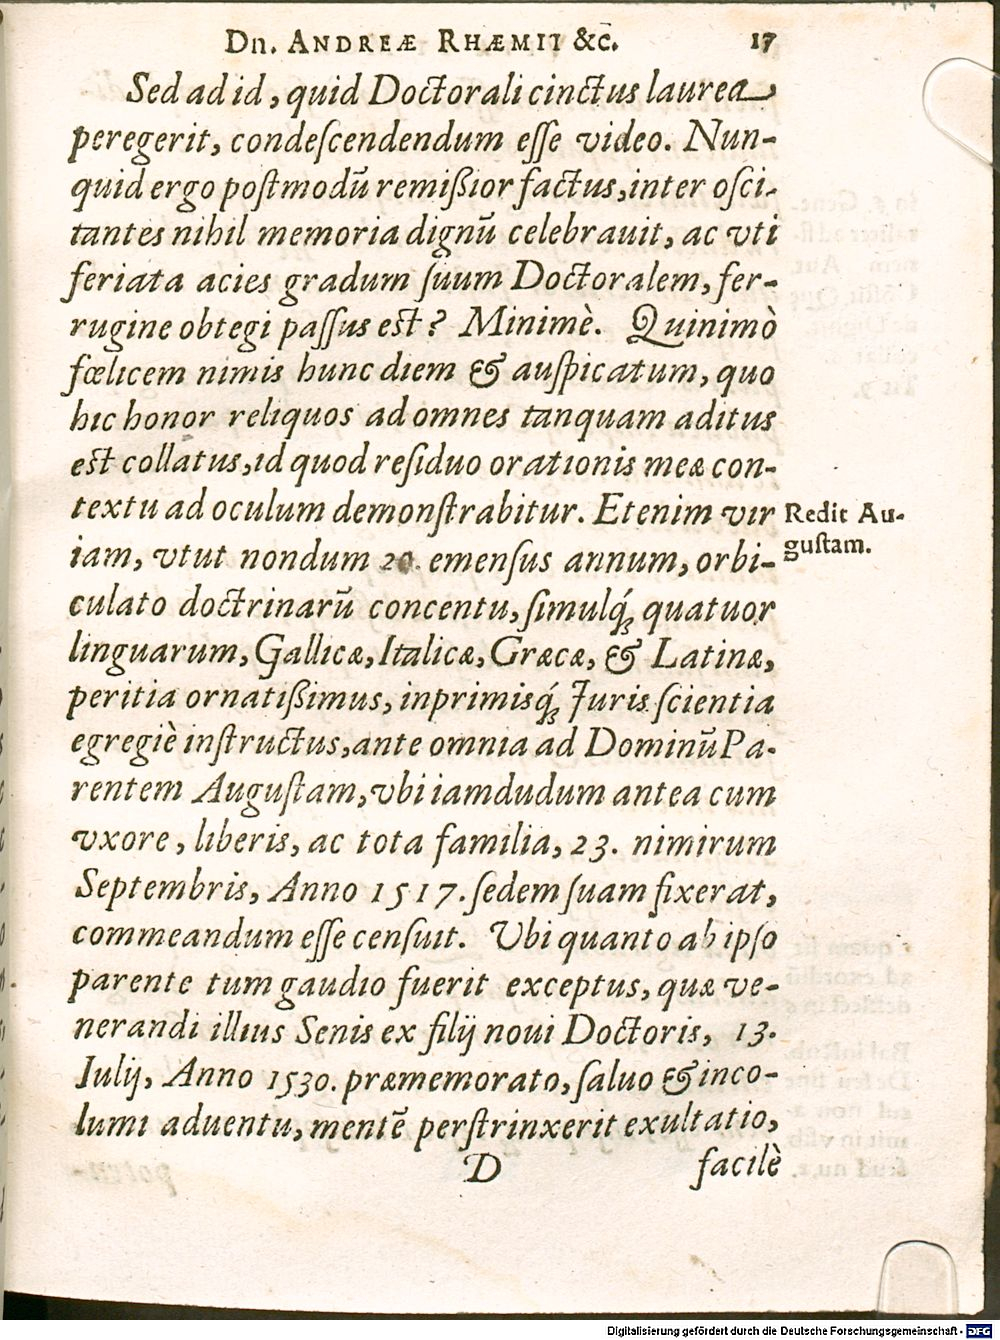 Dn. ANDREÆ RHÆMII &c̃. 17
Sed ad id, quid Doctorali cinctus laurea
peregerit, condeſcendendum eſſe video. Nun-
quid ergo poſtmodũ remißior factus, inter oſci-
tantes nihil memoria dignũ celebrauit, ac vti
feriata acies gradum ſuum Doctoralem, fer-
rugine obtegi paſſus est? Minimè. Quinimò
fœlicem nimis hunc diem & auſpicatum, quo
hic honor reliquos ad omnes tanquam aditus
est collatus, id quod reſiduo orationis meæ con-
textu ad oculum demonſtrabitur. Etenim vir
Redit Au-
guſtam.
iam, vtut nondum 20. emenſus annum, orbi-
culato doctrinarũ concentu, ſimulq́; quatuor
linguarum, Gallicæ, Italicæ, Græcæ, & Latinæ,
peritia ornatißimus, inprimisq́; Juris ſcientia
egregiè inſtructus, ante omnia ad Dominũ Pa-
rentem Auguſtam, vbi iamdudum antea cum
vxore, liberis, ac tota familia, 23. nimirum
Septembris, Anno 1517. ſedem ſuam fixerat,
commeandum eſſe cenſuit. Ubi quanto ab ipſo
parente tum gaudio fuerit exceptus, quæ ve-
nerandi illius Senis ex filij noui Doctoris, 13.
Julij, Anno 1530. præmemorato, ſaluo & inco-
lumi aduentu, mentẽ perſtrinxerit exultatio,
D facilè
Digitalisierung gefördert durch die Deutsche Forschungsgemeinschaft - DFG